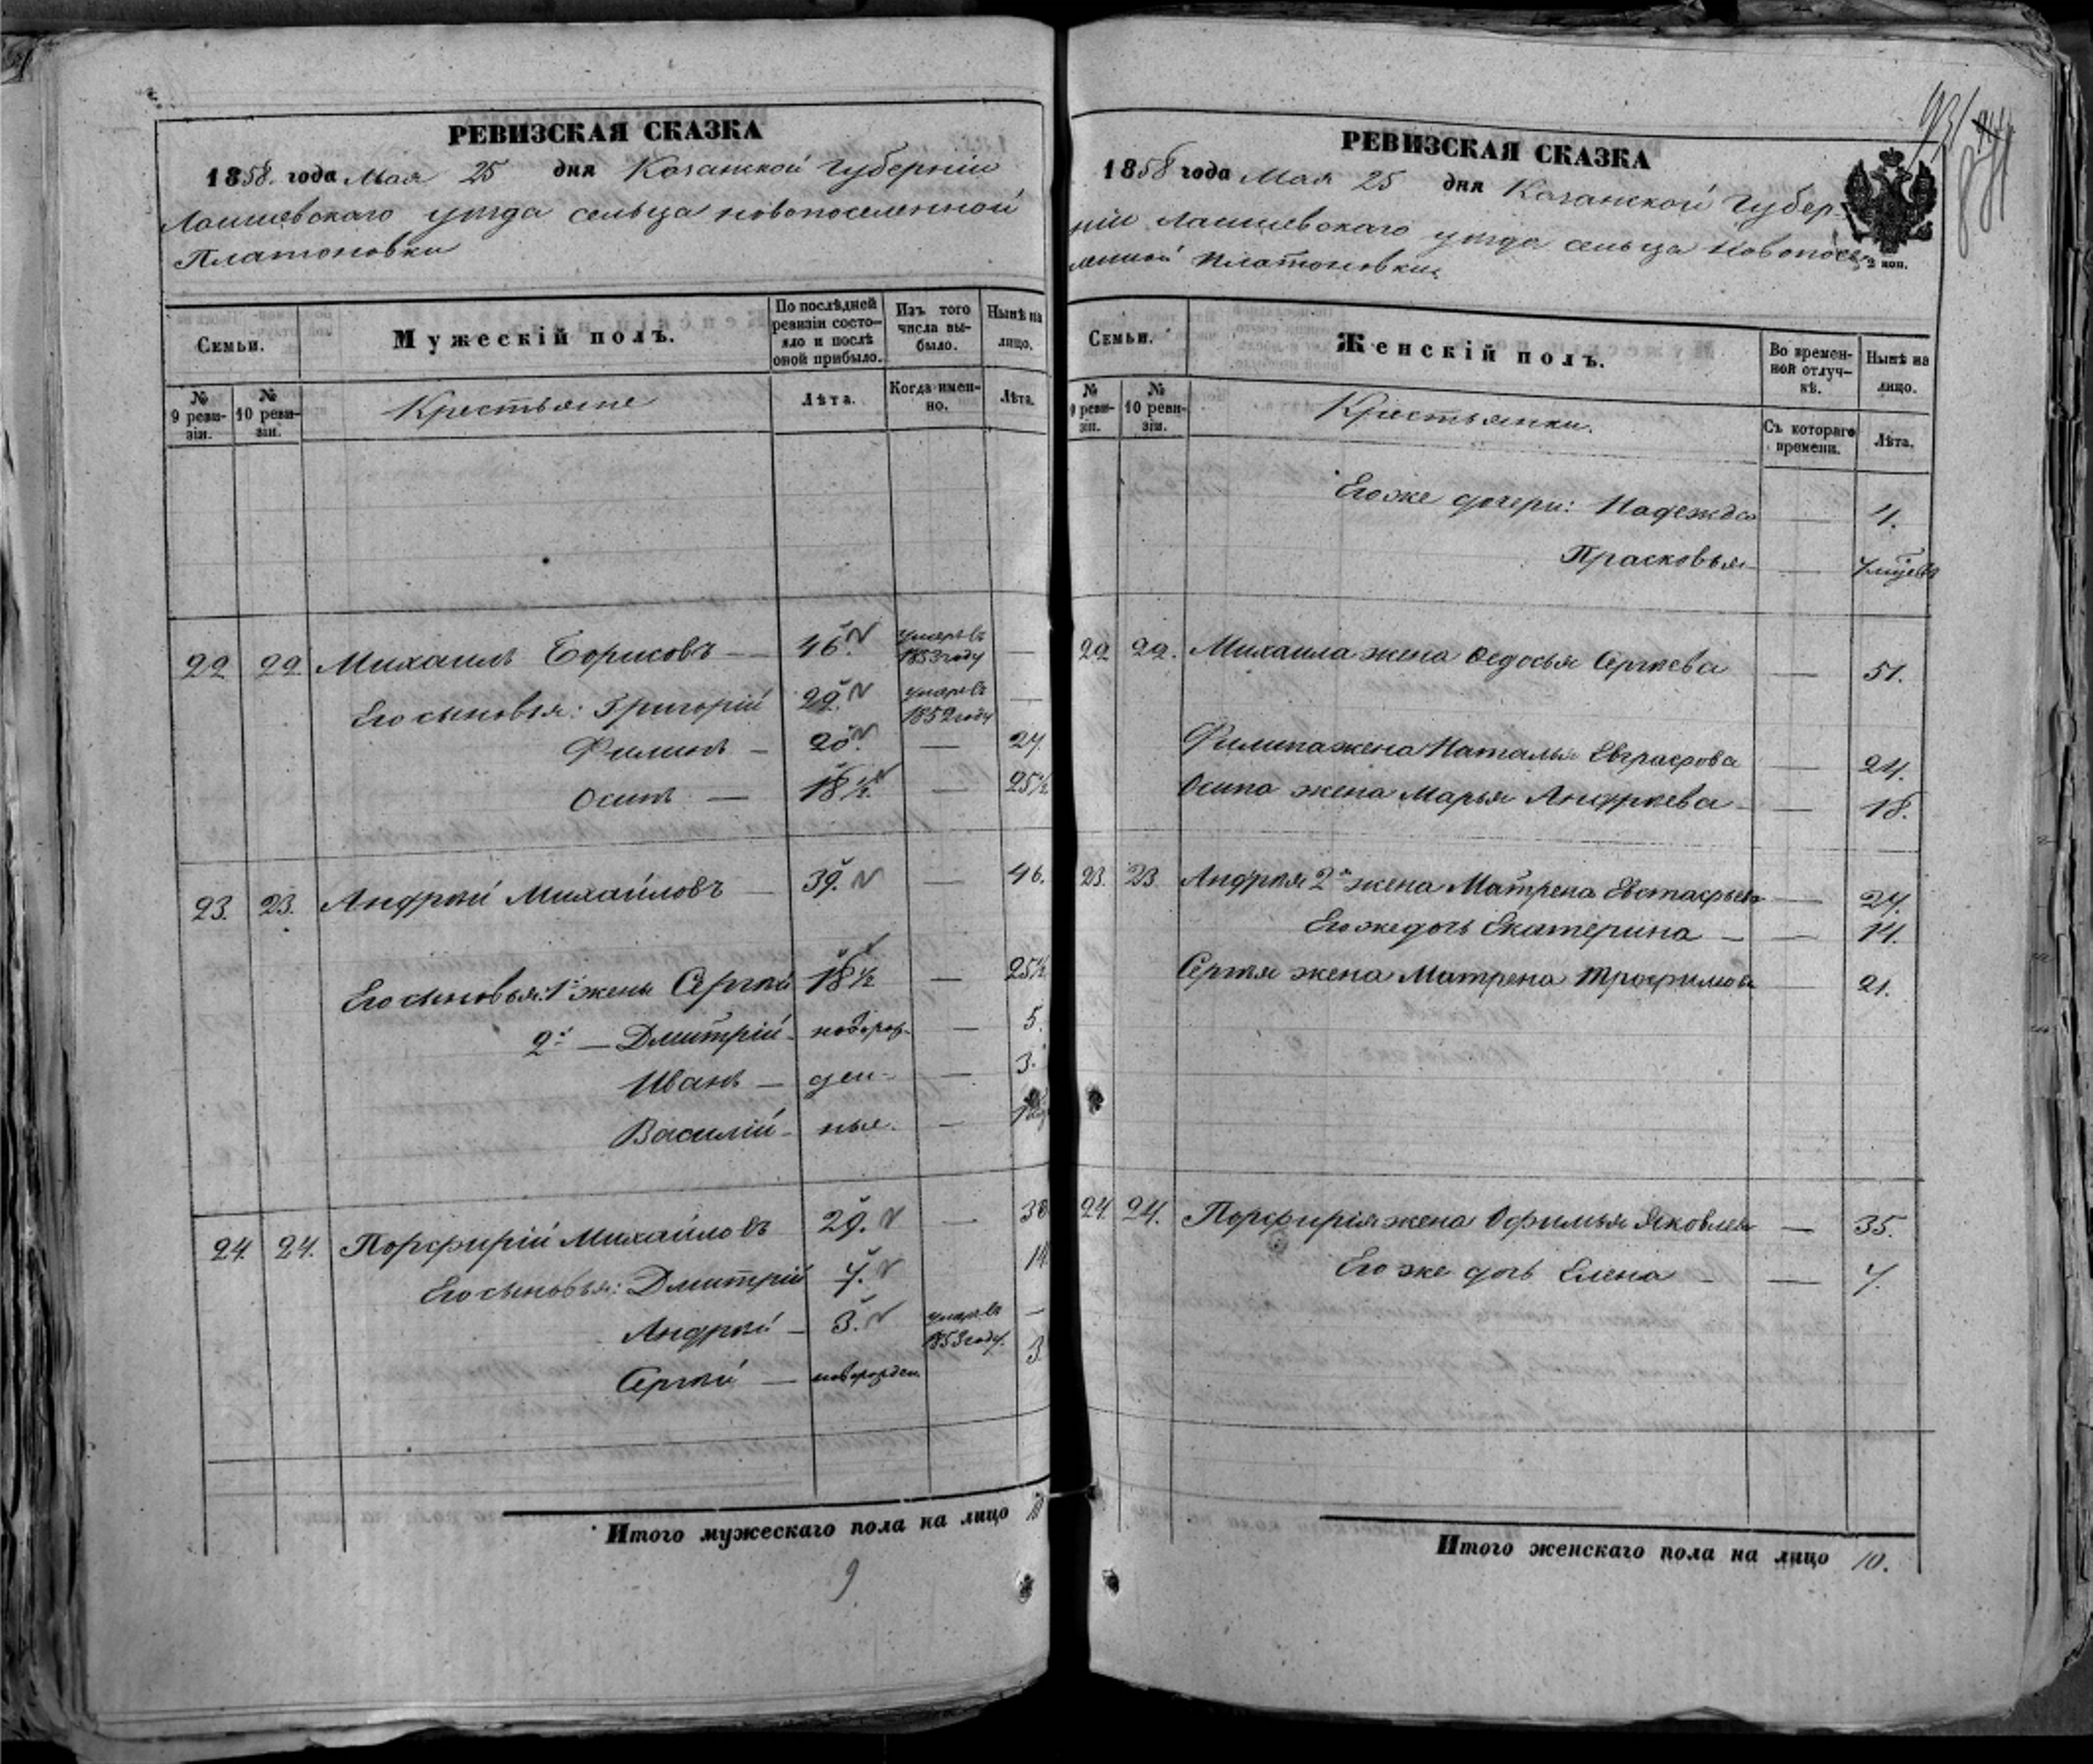 РЕВИЗСКАЯ СКАЗКА
1858. года Мая 25 дня Казанской Губерніи
Лаишевскаго уѣзда сельца новопоселенной
Платоновки
Семьи.
Мужескій полъ.
По послѣдней ревизіи состо-
яло и послѣ оной прибыло.
Изъ того числа вы-
было.
Нынѣ на лицо.
№ 9 реви-
зіи.
№ 10 реви-
зіи.
Крестьяне
Лѣта.
Когда имен-
но.
Лѣта.
22 22 Михаилъ Борисовъ — 46. умеръ въ 1853 году —
Его сыновья: Григорій 22. умеръ въ 1852 году —
Филипъ — 20. — 27.
Осипъ — 18½. — 25½
23. 23. Андрей Михайловъ — 39. — 46.
Его сыновья: 1й жены Сергѣй 18½ — 25½
2й — Дмитрій — новорож- — 5.
Иванъ — ден- — 3.
Василій — ные. —
24. 24. Порфирій Михайловъ 29. — 36
Его сыновья: Дмитрій 7. 14
Андрей — 3. умеръ въ 1853 году. —
Сергѣй — новорожден. 3.
Итого мужескаго пола на лицо
9
РЕВИЗСКАЯ СКАЗКА
1858 года Мая 25 дня Казанской Губер-
ніи Лаишевскаго уѣзда сельца Новопосе-
ленной Платоновки
2 коп.
Семьи.
Женскій полъ.
Во времен-
ной отлуч-
кѣ.
Нынѣ на лицо.
№ 9 реви-
зіи.
№ 10 реви-
зіи.
Крестьянки.
Съ котораго времени.
Лѣта.
Его же дочери: Надежда — 4.
Прасковья —
22 22. Михаила жена Ѳедосья Сергѣева — 51.
Филипа жена Наталья Евграфова — 24.
Осипа жена Марья Андрѣева — 18.
23. 23 Андрея 2я жена Матрена Евстафьева — 27.
Его же дочь Екатерина — 14.
Сергѣя жена Матрена Трофимова — 21.
24. 24. Порфирія жена Офимья Яковлева — 35.
Его же дочь Елена — 7.
Итого женскаго пола на лицо 10.